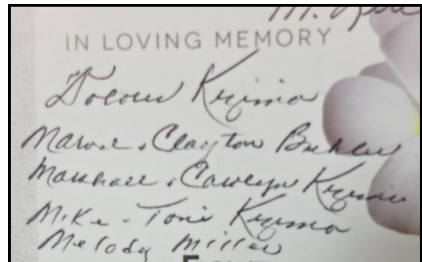 M.
IN LOVING MEMORY
Dolores Krizma
Marvel & Clayton Buhler
Marshall & Carolyn Krizma
Mike - Toni Krizma
Melody Miller